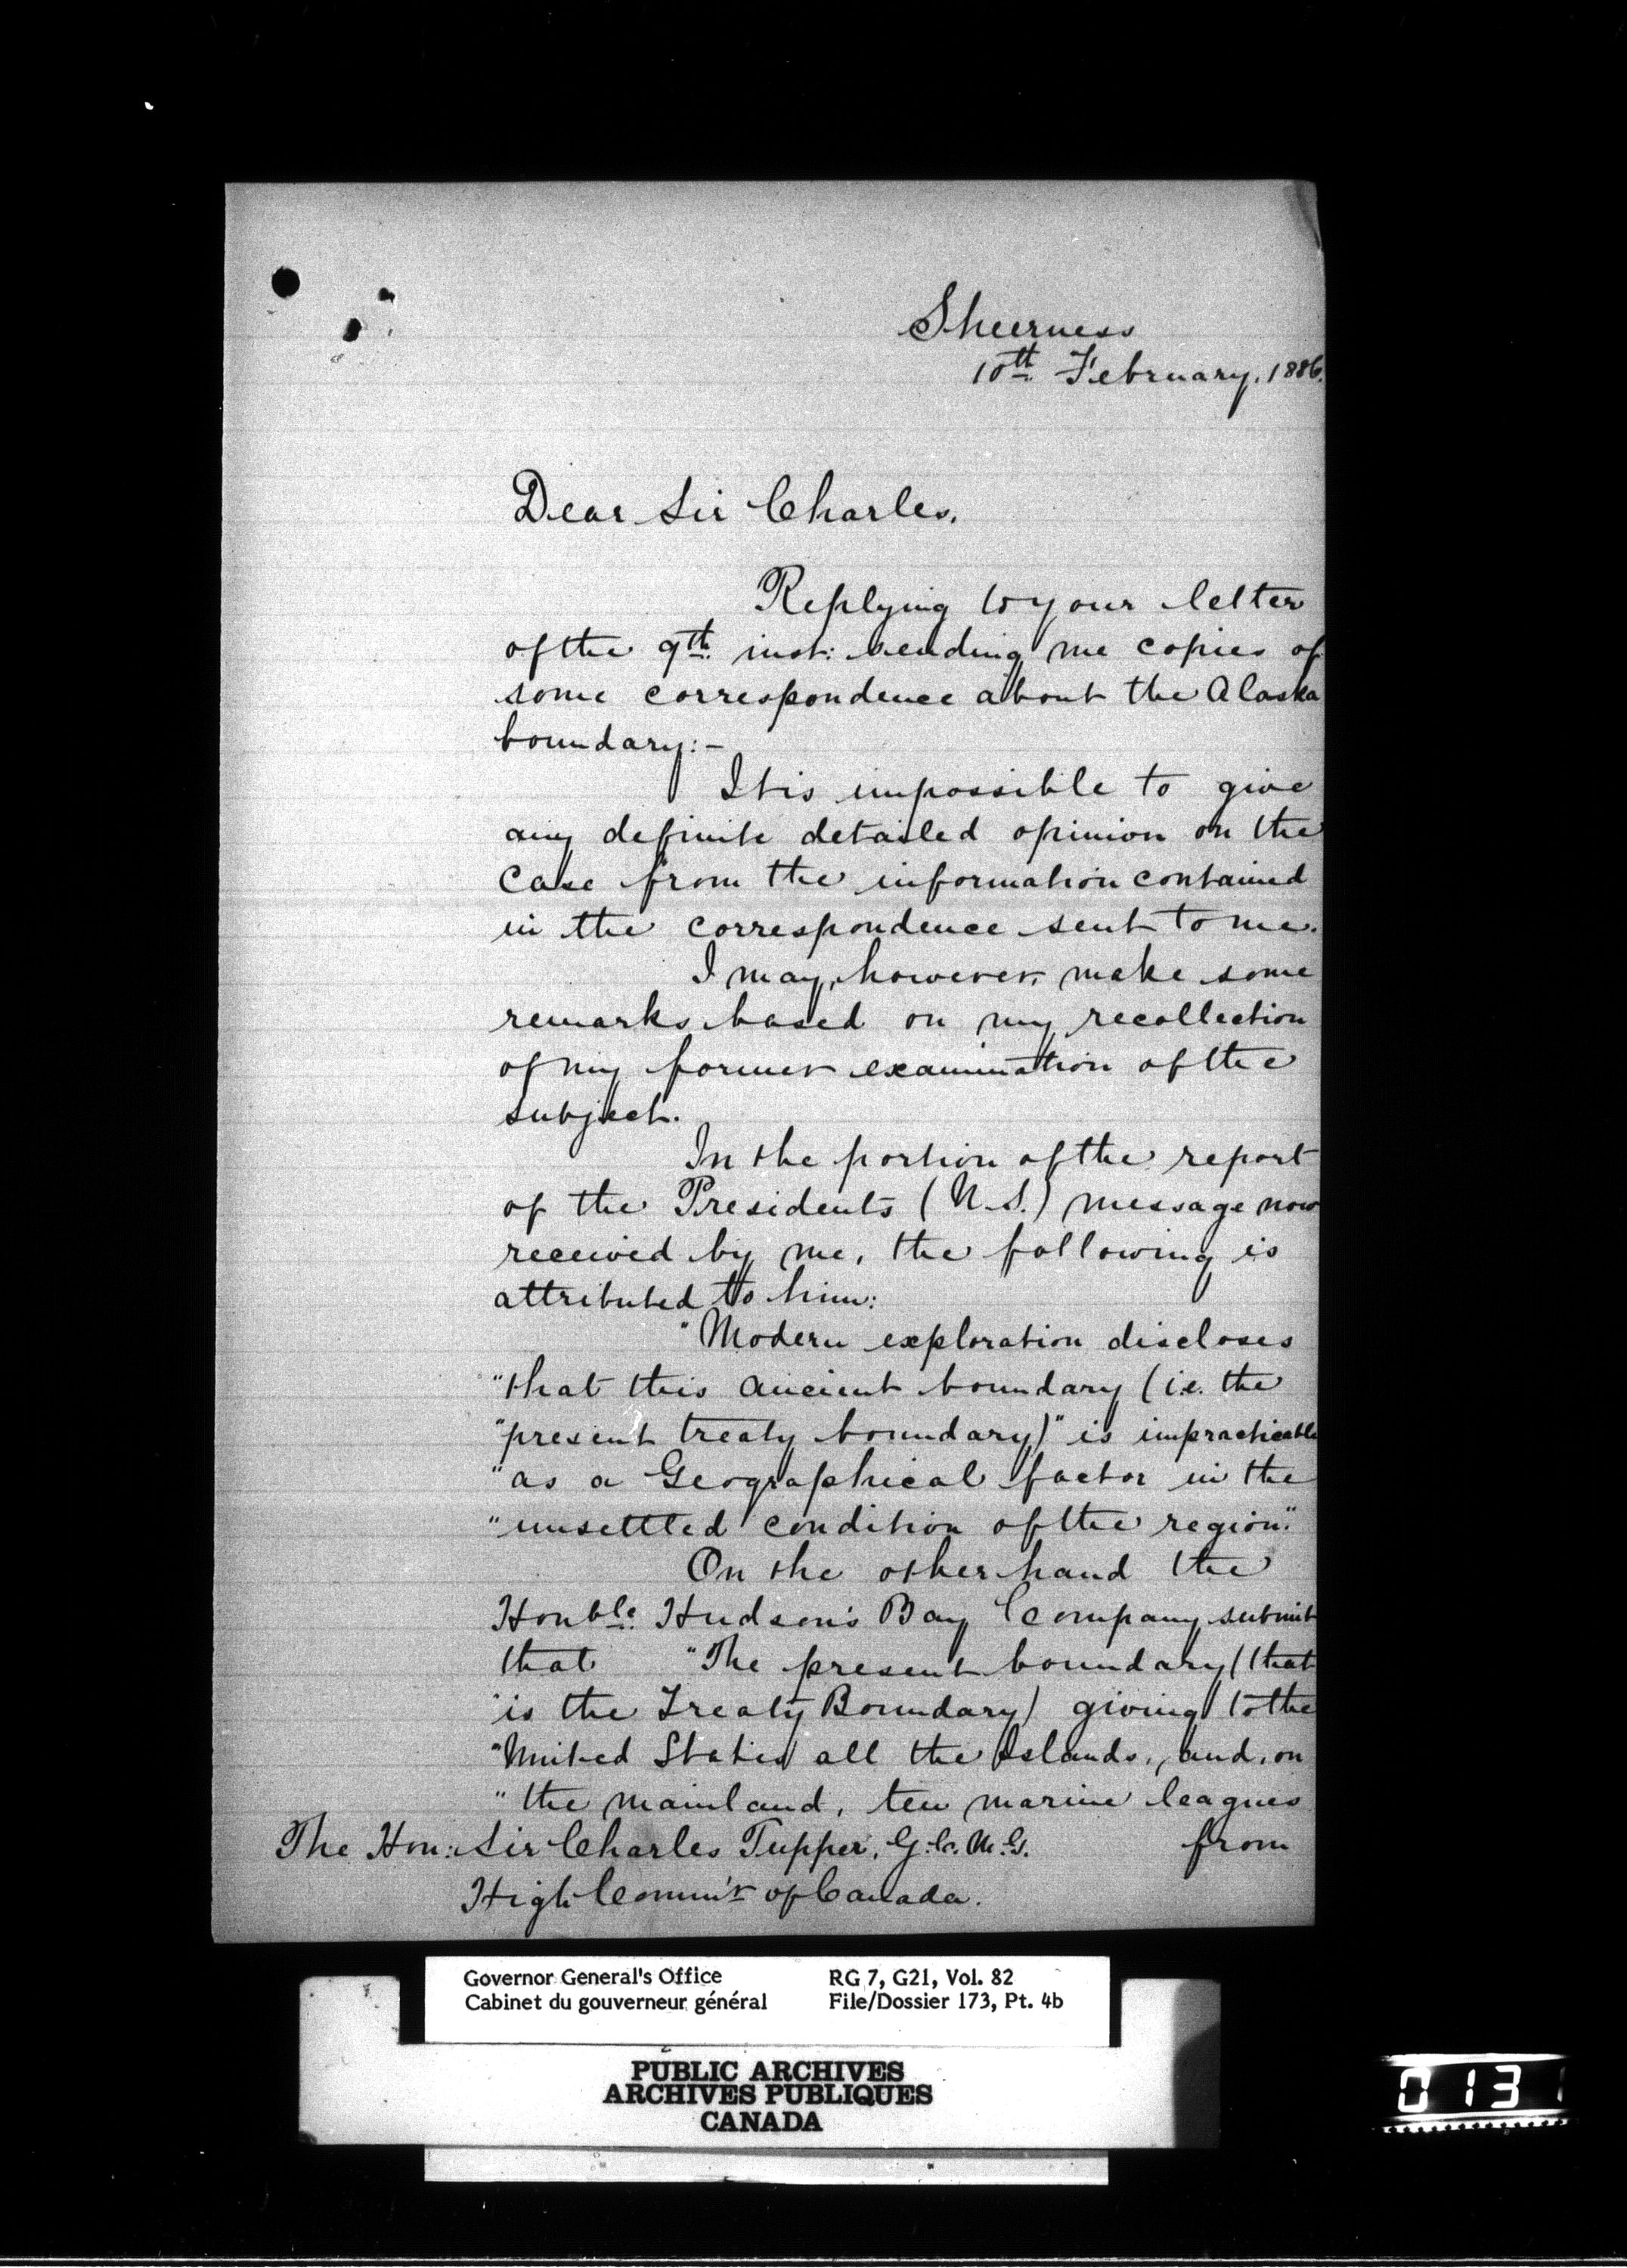 Sheerness
10th February, 1886.
Dear Sir Charles,
Replying to your letter
of the 9th inst: sending me copies of
some correspondence about the Alaska
boundary:-
It is impossible to give
any definite detailed opinion on the
case from the information contained
in the correspondence sent to me.
I may, however, make some
remarks based on my recollection
of my former examination of the
subject.
In the portion of the report
of the Presidents (U.S.) message now
received by me, the following is
attributed to him:
"Modern exploration discloses
"that this ancient boundary (i.e. the
"present treaty boundary)" is impracticable
"as a Geographical factor in the
"unsettled condition of the region."
On the other hand the
Honble. Hudson's Bay Company submit
that "The present boundary (that
"is the Treaty Boundary) giving to the
"United States all the Islands, and, on
"the mainland, ten marine leagues
from
The Hon: Sir Charles Tupper, G.C.M.G.
High Commr of Canada.
Governor General's Office
Cabinet du gouverneur général
RG 7, G21, Vol. 82
File/Dossier 173, Pt. 4b
PUBLIC ARCHIVES
ARCHIVES PUBLIQUES
CANADA
0131